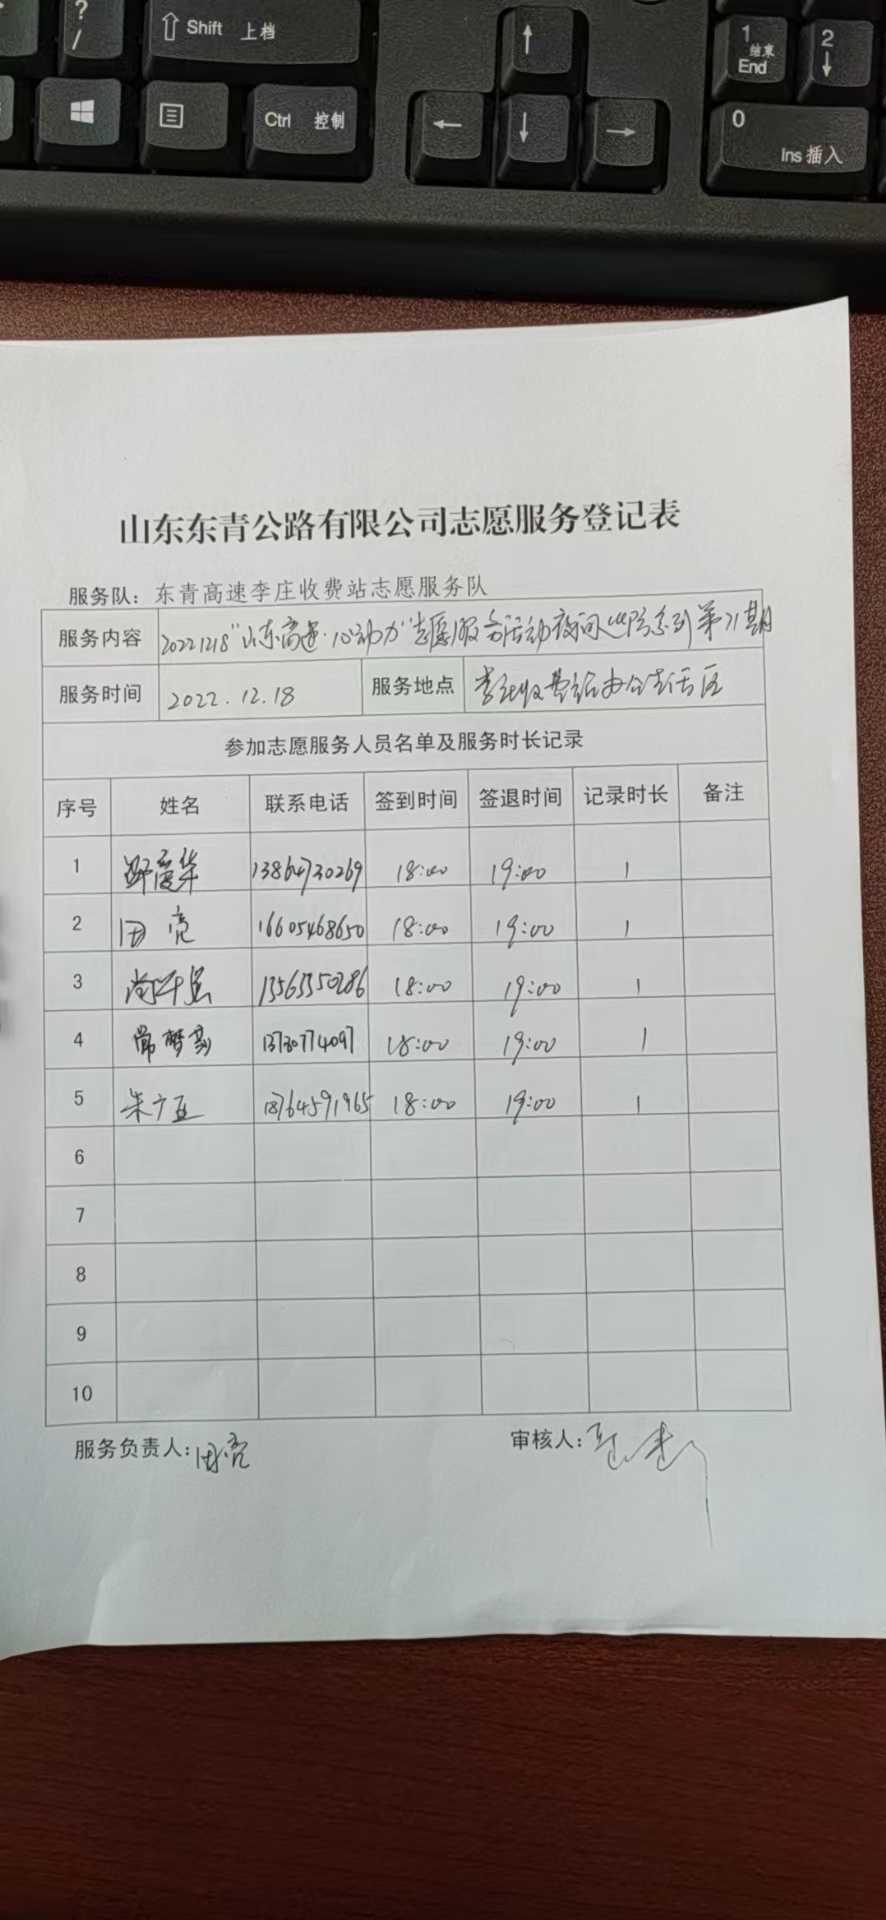 ? /
Shift 上档
Ctrl 控制
1 结束 End
2
0 Ins 插入
山东东青公路有限公司志愿服务登记表
服务队：东青高速李庄收费站志愿服务队
服务内容 20221218"山东高速·心动力"志愿服务活动夜间巡防系列第21期
服务时间 2022.12.18 服务地点 李庄收费站办公生活区
参加志愿服务人员名单及服务时长记录
序号 姓名 联系电话 签到时间 签退时间 记录时长 备注
1 13864730269 18:00 19:00 1
2 田亮 16605468650 18:00 19:00 1
3 13563350286 18:00 19:00 1
4 常梦 18:00 19:00 1
5 朱广 18764591965 18:00 19:00 1
6
7
8
9
10
服务负责人：田亮 审核人：